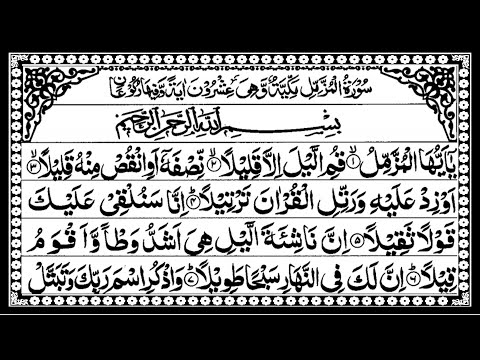 سُوْرَةُ الْمُزَّمِّلِ مَكِّيَّةٌ وَّهِيَ عِشْرُوْنَ اٰيَةً وَّفِيْهَا رُكُوْعَانِ
بِسْمِ اللّٰهِ الرَّحْمٰنِ الرَّحِيْمِ
يٰۤاَيُّهَا الْمُزَّمِّلُ ۙ﴿۱﴾ قُمِ الَّيْلَ اِلَّا قَلِيْلًا ۙ﴿۲﴾ نِّصْفَهٗۤ اَوِ انْقُصْ مِنْهُ قَلِيْلًا ۙ﴿۳﴾
اَوْ زِدْ عَلَيْهِ وَرَتِّلِ الْقُرْاٰنَ تَرْتِيْلًا ؕ﴿۴﴾ اِنَّا سَنُلْقِيْ عَلَيْكَ
قَوْلًا ثَقِيْلًا ﴿۵﴾ اِنَّ نَاشِئَةَ الَّيْلِ هِيَ اَشَدُّ وَطْاً وَّاَقْوَمُ
قِيْلًا ؕ﴿۶﴾ اِنَّ لَكَ فِي النَّهَارِ سَبْحًا طَوِيْلًا ؕ﴿۷﴾ وَاذْكُرِ اسْمَ رَبِّكَ وَتَبَتَّلْ